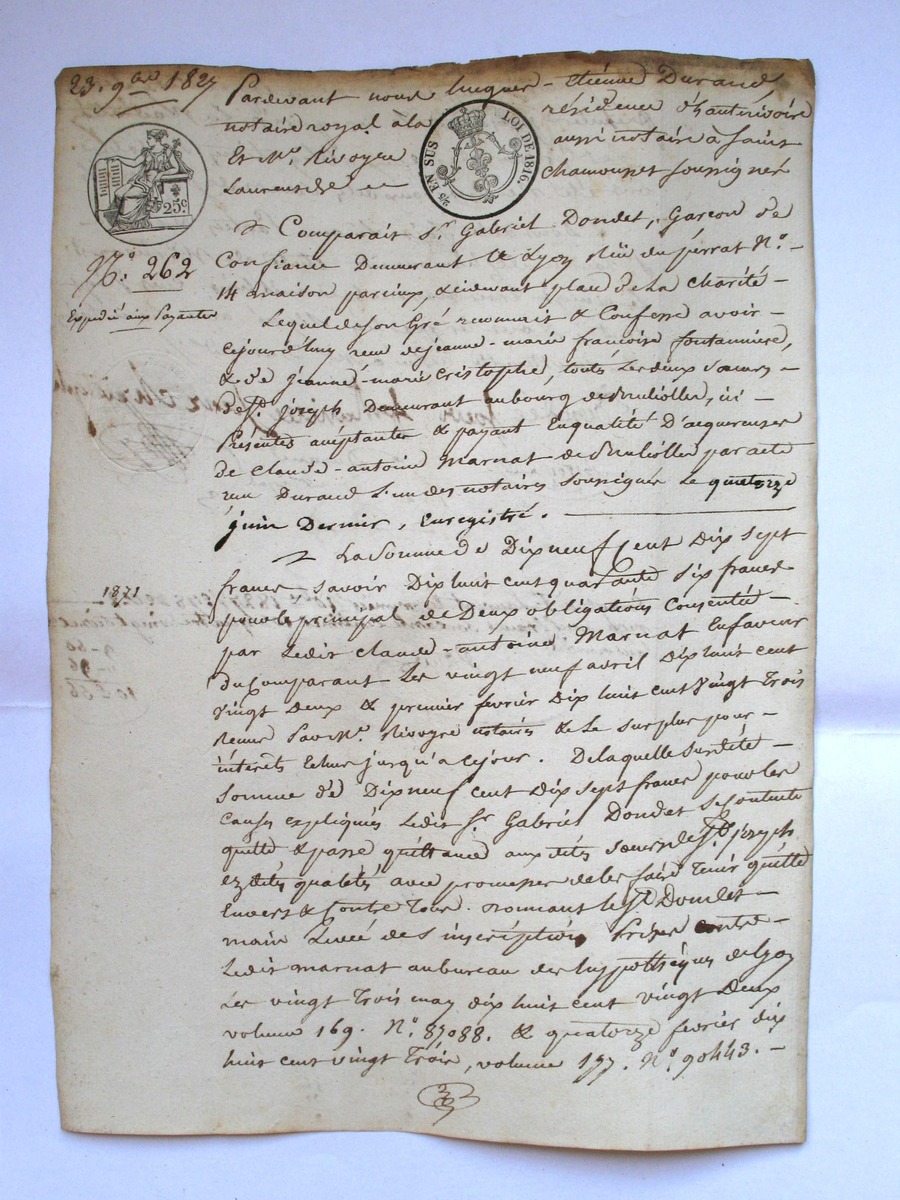 23. 9bre 1827
Pardevant nous hugues-étienne Durand,
notaire royal à la résidence d'hauterivoire
Et Me. Rivoyre aussi notaire à Saint
Laurent de Chamousset soussignés
25 EN SUS LOI DE 1816.
25c
No. 262
Expédié aux Payantes
Comparait Sr. Gabriel Dondet, Garçon de
Confiance Demeurant à Lyon rüe du perrat No. -
14 maison parcieux, cidevant place de la charité -
Lequel de son Gré reconnait & Confesse avoir -
cejourd'huy reçu de jeanne-marie françoise fontanniere,
& de jeanne-marie Cristophe, toutes les deux Soeurs -
de St. joseph Demeurant au bourg de Brulliolles, ici -
Présentes acceptantes & payant En qualité D'acquereuses
de Claude-antoine Marnat de Brulliolles par acte
reçu Durand L'un des notaires Soussignés Le quatorze
juin Dernier, Enregistré.
La Somme de Dix neuf Cent Dix Sept
francs, Savoir Dix huit cent quarante Six francs
pour le principal de Deux obligations Consenties
par Ledit Claude-antoine Marnat En faveur
Du Comparant Les vingt neuf avril Dix huit cent
vingt Deux & premier fevrier Dix huit cent vingt Trois
Reçues Par Me. Rivoyre notaire & Le Surplus pour -
intérêts Echus jusqu'à ce jour. De laquelle Susdite -
Somme de Dix neuf cent Dix Sept francs pour les
Causes expliquées Ledit Sr. Gabriel Dondet Se Contente
quitte & passe quittance aux dites Soeurs de St. joseph
ez dites qualités, avec promesse de les faire Tenir quitte
Envers & Contre Tous. Donnant le Sr. Dondet -
main Levée des inscriptions Prises contre -
Ledit marnat au bureau des hypothèques de Lyon
Les vingt Trois may dix huit cent vingt Deux
volume 169. No. 87088. & quatorze fevrier dix
huit cent vingt Trois, volume 177. No. 90443. -
1871